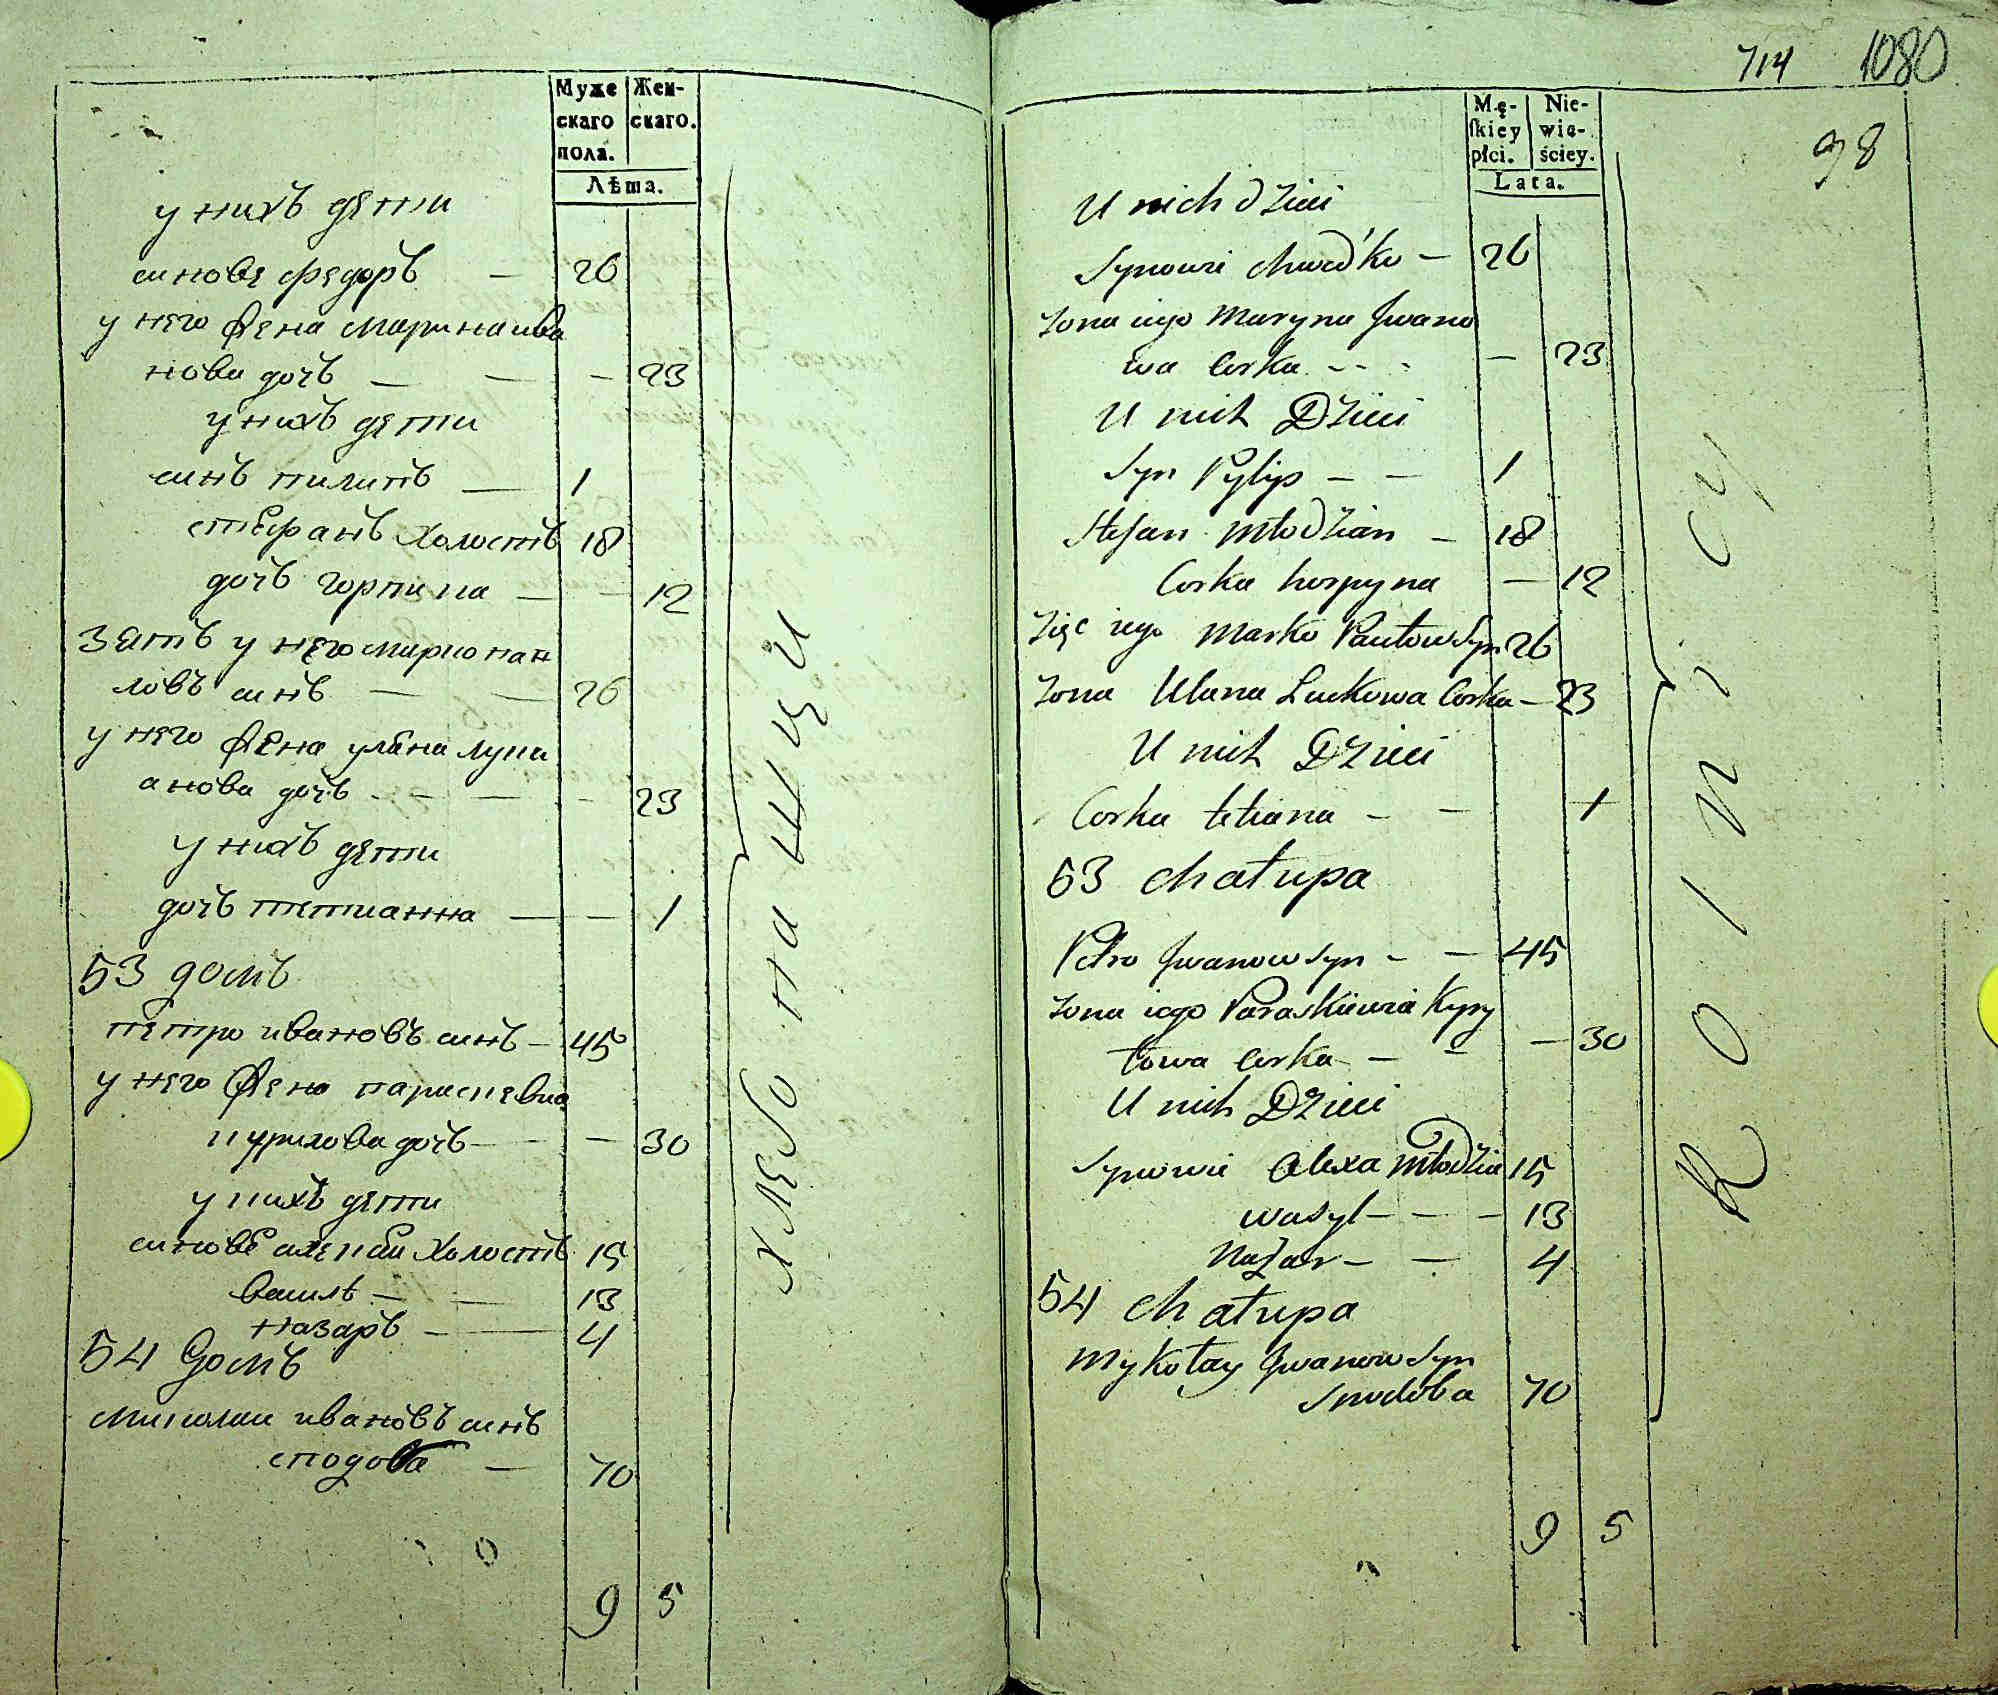 Муже
скаго
пола.
Жен-
скаго.
Лѣта.
у нихъ дети
синове федоръ — 26
у него жена марина ива
нова дочъ — — — 23
у нихъ дети
синъ пилипъ — 1
стефанъ холостъ 18
дочъ горпина — — 12
Зятъ у него марко пав
ловъ синъ — — 26
у него жена уляна луки
анова дочъ — — — 23
у нихъ дети
дочъ тетианна — — 1
53 домъ
петро ивановъ синъ — 45
у него жена параскевиа
курилова дочъ — — 30
у нихъ дети
синове алексей холостъ 15
василь — — 13
назаръ — — 4
54 домъ
миколай ивановъ синъ
сподоба — 70
9 5
хлебопашци
714 1080
98
Mę-
skiey
płci.
Nie-
wie-
ściey.
Lata.
U nich dzieci
Synowie chwedko — 26
Zona iego Maryna Jwano
wa Corka - - - — 23
U nich Dzieci
Syn Pylyp — — 1
Stefan młodzian — 18
Corka horpyna — 12
Zięc iego Marko Pawłow Syn 26
Zona Ulana Lukowa Corka — 23
U nich Dzieci
Corka tetiana — — 1
53 chałupa
Petro Jwanow Syn - — 45
Zona iego Paraskiewia Kyry
łowa Corka — — — 30
U nich Dzieci
Synowie Alexa młodzia 15
Wasyl — — — 13
Nazar — — 4
54 chałupa
Mykołay Jwanow Syn
Spodoba 70
9 5
Rolnicy